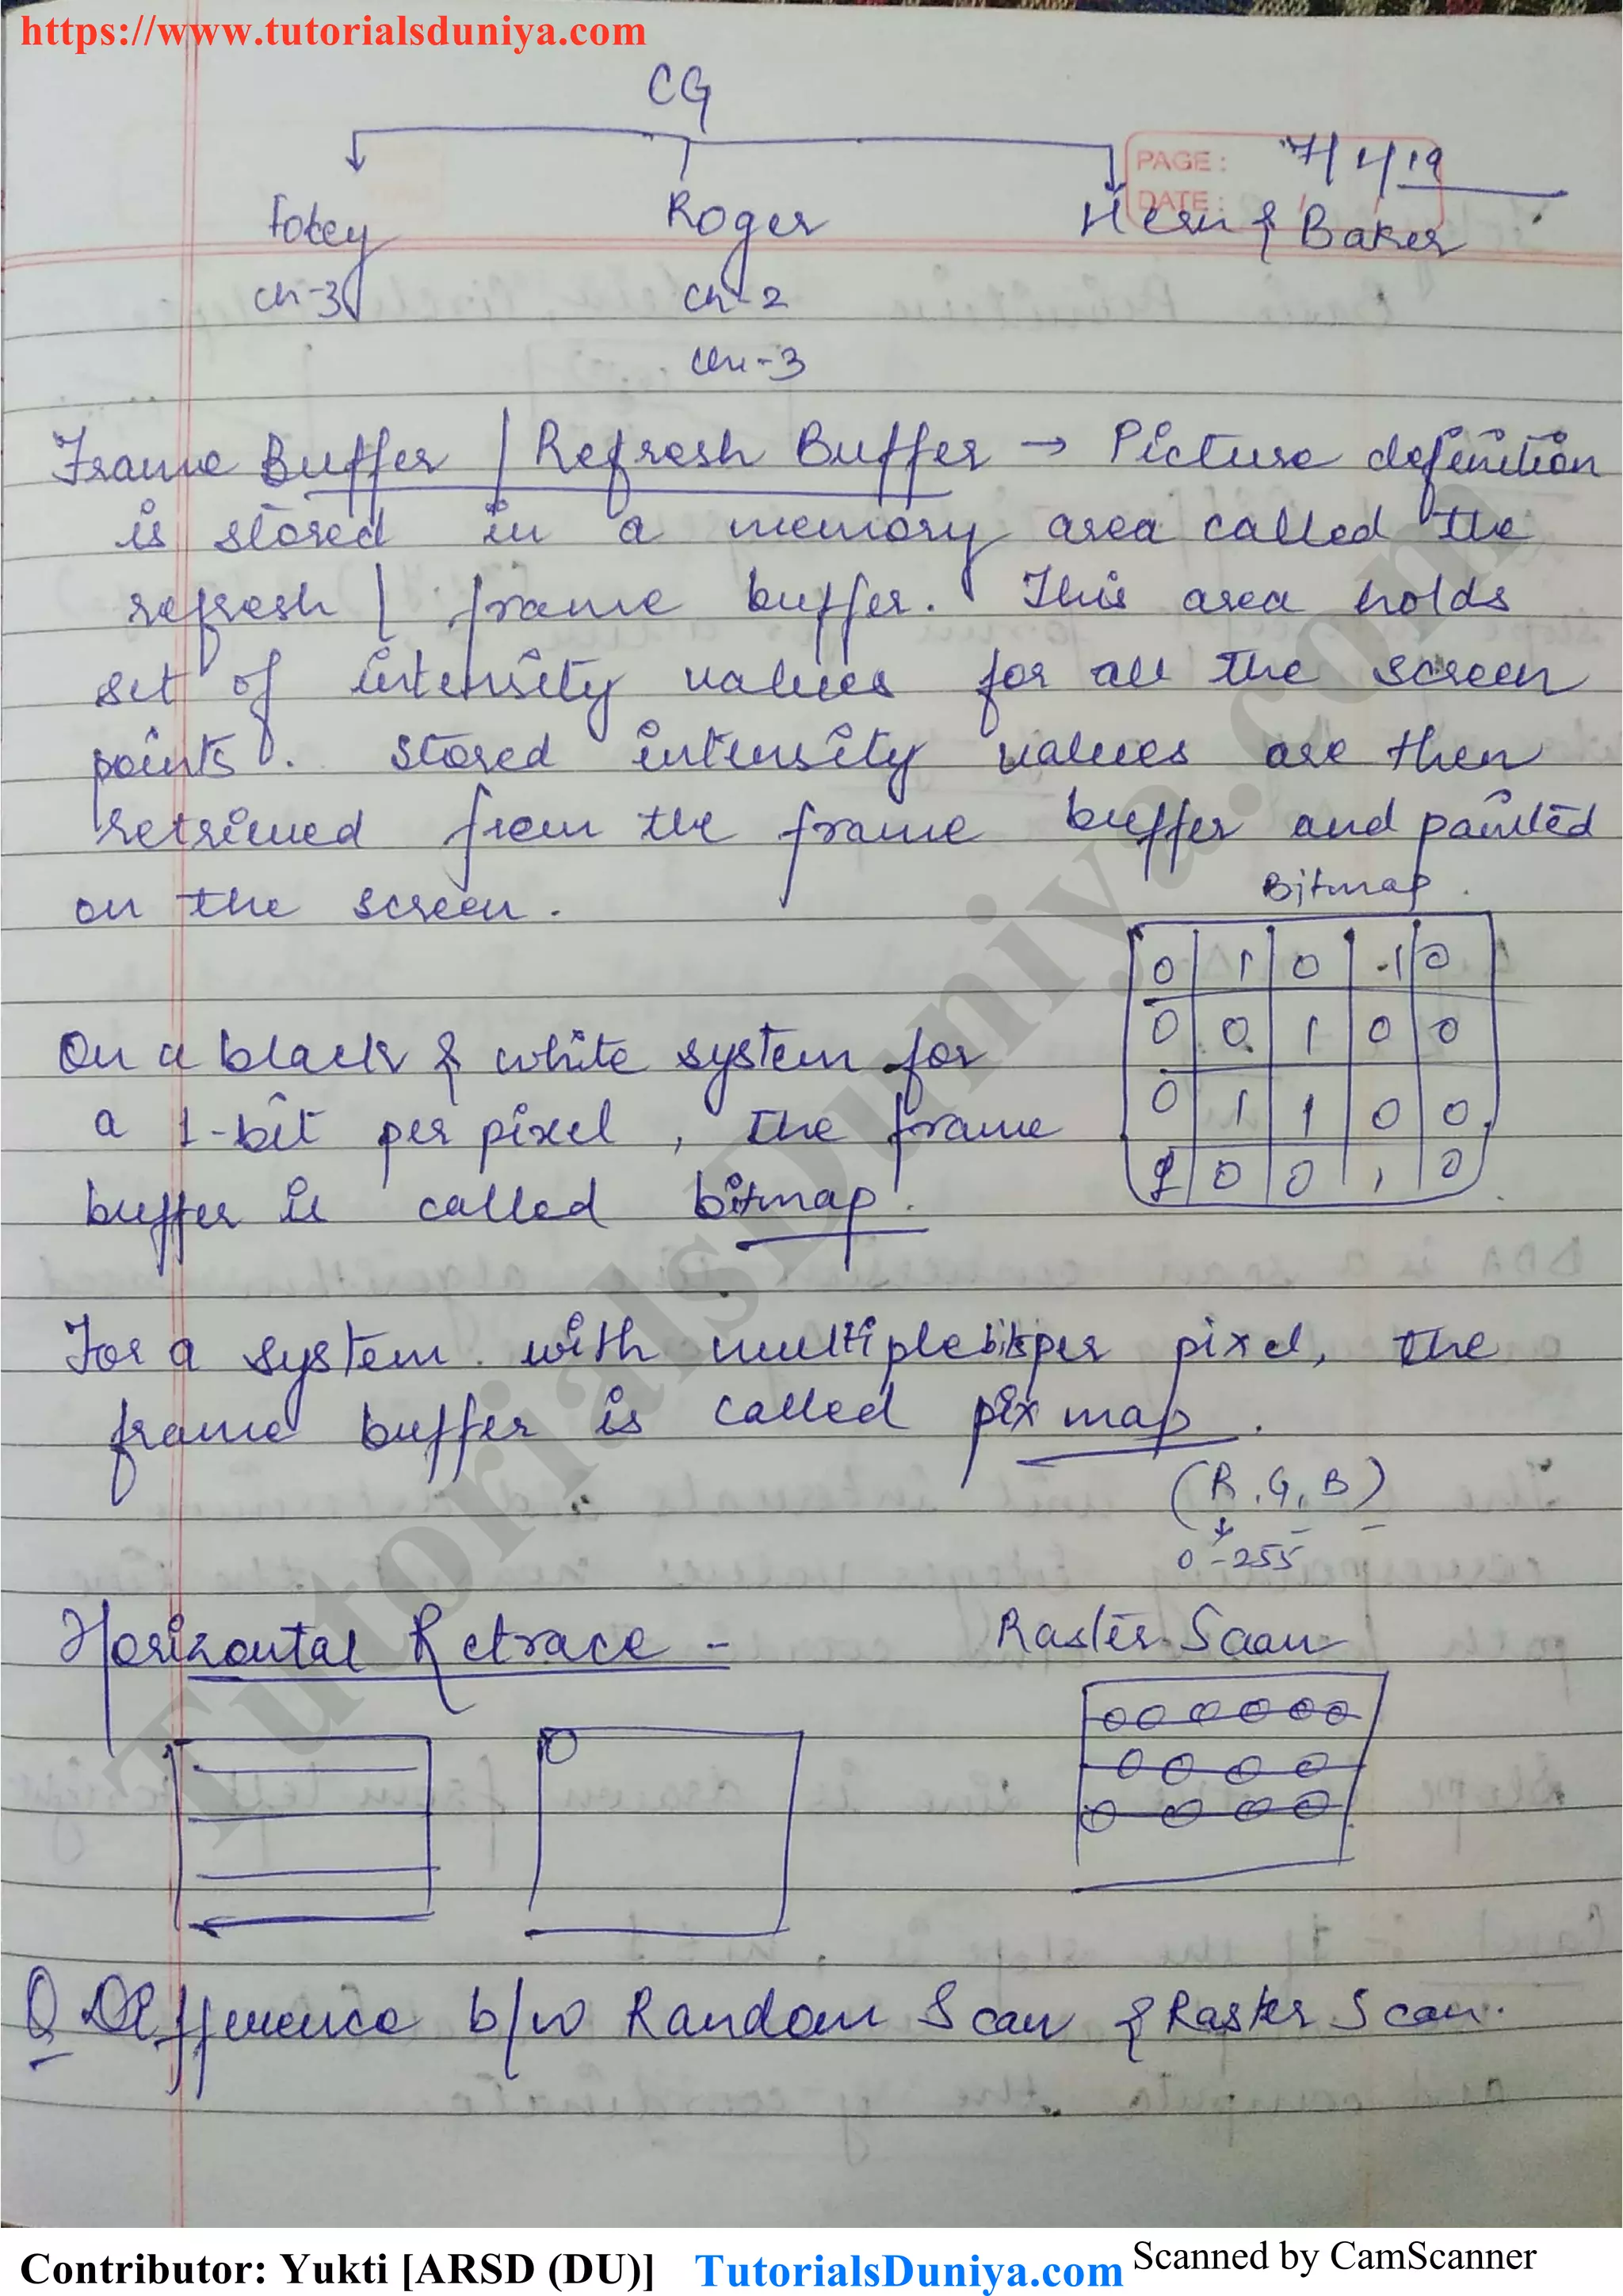 https://www.tutorialsduniya.com
CG
PAGE: 7/1/19
DATE: / /
Foley Roger Hern & Baker
Ch-3 Ch-2
Ch-3
Frame Buffer / Refresh Buffer → Picture definition
is stored in a memory area called the
refresh / frame buffer. This area holds
set of intensity values for all the screen
points. Stored intensity values are then
retrieved from the frame buffer and painted
on the screen.
Bitmap
0 1 0 1 0
0 0 1 0 0
0 1 1 0 0
1 0 0 1 0
On a black & white system for
a 1-bit per pixel, the frame
buffer is called bitmap.
For a system with multiple bits per pixel, the
frame buffer is called pixmap.
(R, G, B)
0-255
Horizontal Retrace -
Raster Scan
Q Difference b/w Random Scan & Raster Scan.
TutorialsDuniya.com
Contributor: Yukti [ARSD (DU)] TutorialsDuniya.com Scanned by CamScanner